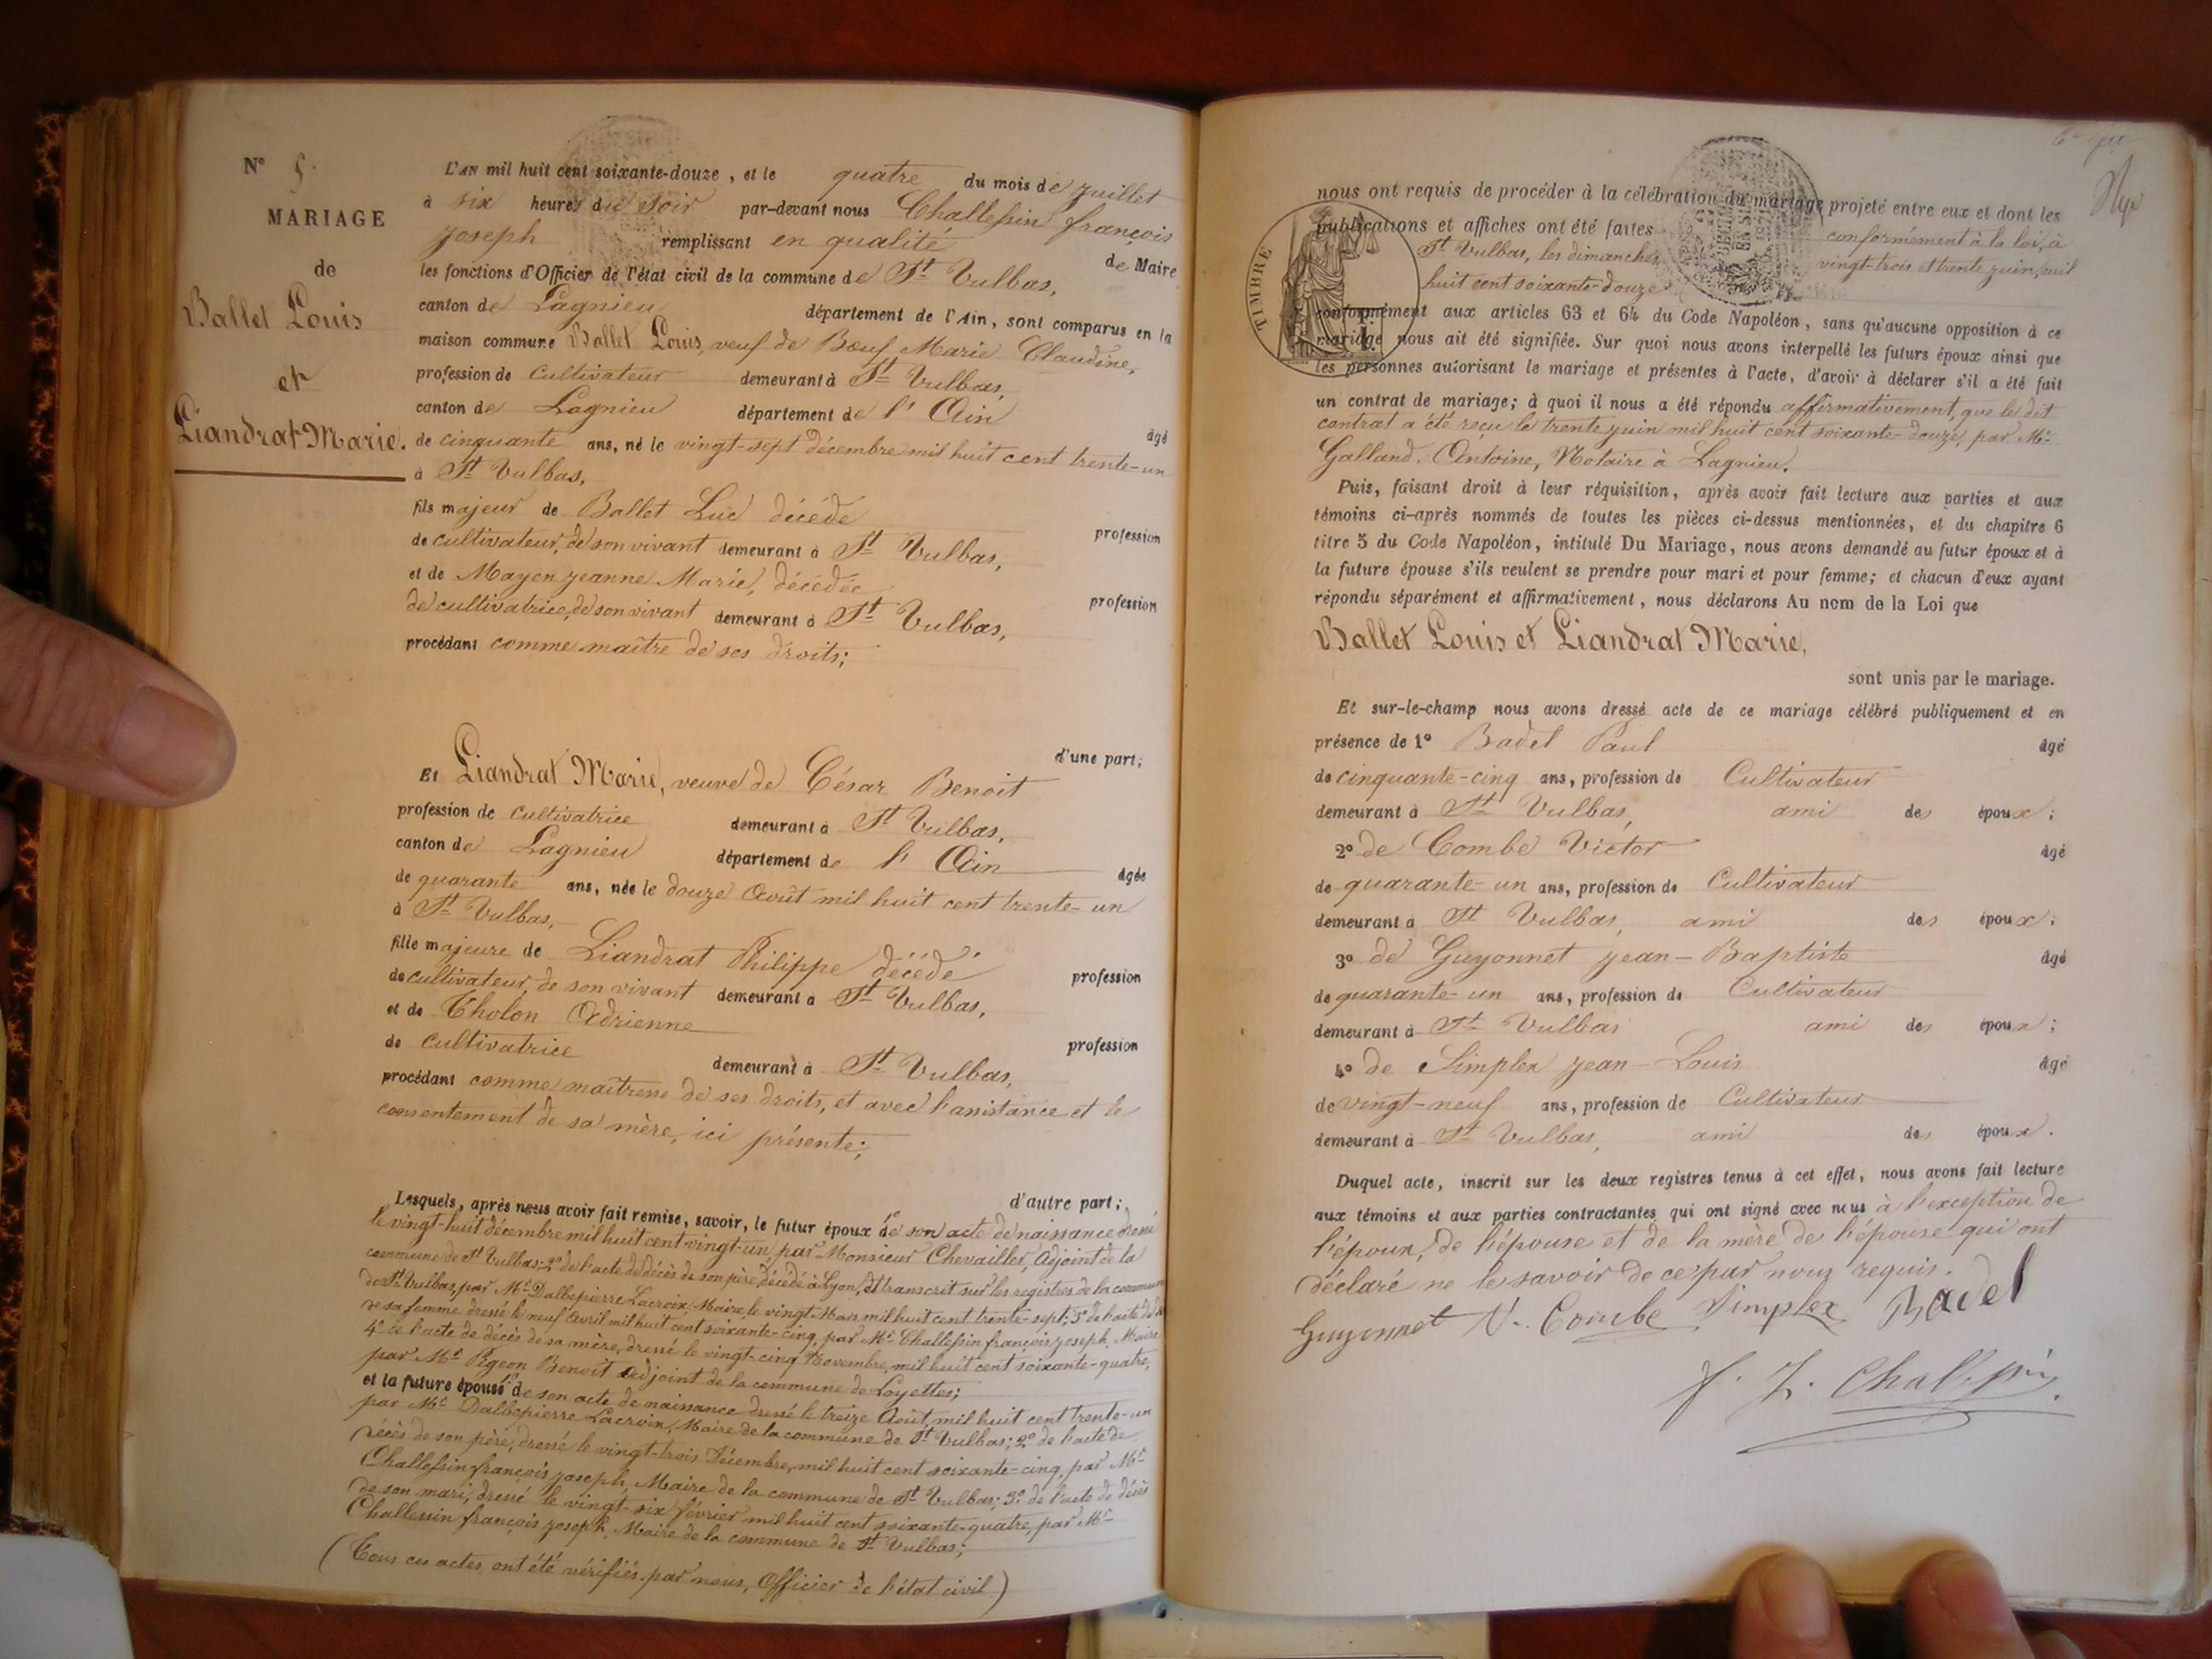 N° 5.
MARIAGE
de
Ballet Louis
et
Liandrat Marie.
L'AN mil huit cent soixante-douze, et le quatre du mois de juillet
à six heures du soir par-devant nous Challessin françois
joseph remplissant en qualité de Maire
les fonctions d'Officier de l'état civil de la commune de St Vulbas,
canton de Lagnieu département de l'Ain, sont comparus en la
maison commune Ballet Louis, veuf de Bœuf Marie Claudine,
profession de cultivateur demeurant à St Vulbas,
canton de Lagnieu département de l'Ain âgé
de cinquante ans, né le vingt-sept décembre mil huit cent trente-un
à St Vulbas,
fils majeur de Ballet Luc décédé profession
de cultivateur, de son vivant demeurant à St Vulbas,
et de Mayen jeanne Marie, décédée profession
de cultivatrice, de son vivant demeurant à St Vulbas,
procédant comme maître de ses droits;
d'une part;
Et Liandrat Marie, veuve de César Benoit
profession de cultivatrice demeurant à St Vulbas,
canton de Lagnieu département de l'Ain âgée
de quarante ans, née le douze Août mil huit cent trente-un
à St Vulbas,
fille majeure de Liandrat Philippe décédé profession
de cultivateur, de son vivant demeurant à St Vulbas,
et de Tholon Adrienne profession
de cultivatrice demeurant à St Vulbas,
procédant comme maîtresse de ses droits, et avec l'assistance et le
consentement de sa mère, ici présente;
d'autre part;
Lesquels, après nous avoir fait remise, savoir, le futur époux 1° de son acte de naissance dressé
le vingt-huit décembre mil huit cent vingt-un, par Monsieur Chevailler, Adjoint de la
commune de St Vulbas; 2° de l'acte de décès de son père, décédé à Lyon, et transcrit sur les registres de la commune
de St Vulbas, par Mr Dalbepierre Lacroix, Maire, le vingt Mars mil huit cent trente-sept; 3° de l'acte de décès
de sa femme dressé le neuf Avril mil huit cent soixante-cinq, par Mr Challessin françois joseph, Maire
4° de l'acte de décès de sa mère, dressé le vingt-cinq Novembre, mil huit cent soixante-quatre,
par Mr Pigeon Benoit Adjoint de la commune de Loyettes;
et la future épouse 1° de son acte de naissance dressé le treize Août, mil huit cent trente-un
par Mr Dalbepierre Lacroix, Maire de la commune de St Vulbas; 2° de l'acte de
décès de son père, dressé le vingt-trois Décembre, mil huit cent soixante-cinq, par Mr
Challessin françois joseph, Maire de la commune de St Vulbas; 3° de l'acte de décès
de son mari, dressé le vingt-six février mil huit cent soixante-quatre, par Mr
Challessin françois joseph, Maire de la commune de St Vulbas;
(Tous ces actes, ont été vérifiés par nous, Officier de l'état civil)
TIMBRE
nous ont requis de procéder à la célébration du mariage projeté entre eux et dont les
publications et affiches ont été faites conformément à la loi, à
St Vulbas, les dimanches vingt-trois et trente juin, mil
huit cent soixante-douze
conformément aux articles 63 et 64 du Code Napoléon, sans qu'aucune opposition à ce
mariage nous ait été signifiée. Sur quoi nous avons interpellé les futurs époux ainsi que
les personnes autorisant le mariage et présentes à l'acte, d'avoir à déclarer s'il a été fait
un contrat de mariage; à quoi il nous a été répondu affirmativement, que le dit
contrat a été reçu le trente juin mil huit cent soixante-douze, par Mr
Galland. Antoine, Notaire à Lagnieu.
Puis, faisant droit à leur réquisition, après avoir fait lecture aux parties et aux
témoins ci-après nommés de toutes les pièces ci-dessus mentionnées, et du chapitre 6
titre 5 du Code Napoléon, intitulé Du Mariage, nous avons demandé au futur époux et à
la future épouse s'ils veulent se prendre pour mari et pour femme; et chacun d'eux ayant
répondu séparément et affirmativement, nous déclarons Au nom de la Loi que
Ballet Louis et Liandrat Marie,
sont unis par le mariage.
Et sur-le-champ nous avons dressé acte de ce mariage célébré publiquement et en
présence de 1° Badel Paul âgé
de cinquante-cinq ans, profession de Cultivateur
demeurant à St Vulbas, ami des époux;
2° de Combe Victor âgé
de quarante-un ans, profession de Cultivateur
demeurant à St Vulbas, ami des époux;
3° de Guyonnet jean-Baptiste âgé
de quarante-un ans, profession de Cultivateur
demeurant à St Vulbas ami des époux;
4° de Simplex jean-Louis âgé
de vingt-neuf ans, profession de Cultivateur
demeurant à St Vulbas, ami des époux.
Duquel acte, inscrit sur les deux registres tenus à cet effet, nous avons fait lecture
aux témoins et aux parties contractantes qui ont signé avec nous à l'exception de
l'époux, de l'épouse et de la mère de l'épouse qui ont
déclaré ne le savoir de ce par nous requis.
Guyonnet V. Combe Simplex Badel
f. J. Challessin